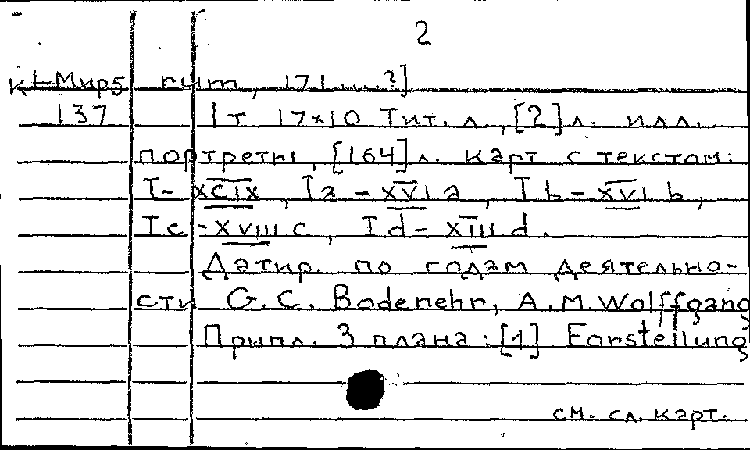 2
К4-Мир5 rum, 171...?]
137 1 т 17×10 Тит. л., [2] л. илл.
портреты, [164] л. карт с текстом:
I - XCIX, Ia - XVI a, I b - XVI b,
I c - XVIII c, I d - XIII d.
Датир. по годам деятельно-
сти G. C. Bodenehr, A. M. Wolffgang
Припл. 3 плана: [1] Forstellung
см. сл. карт.